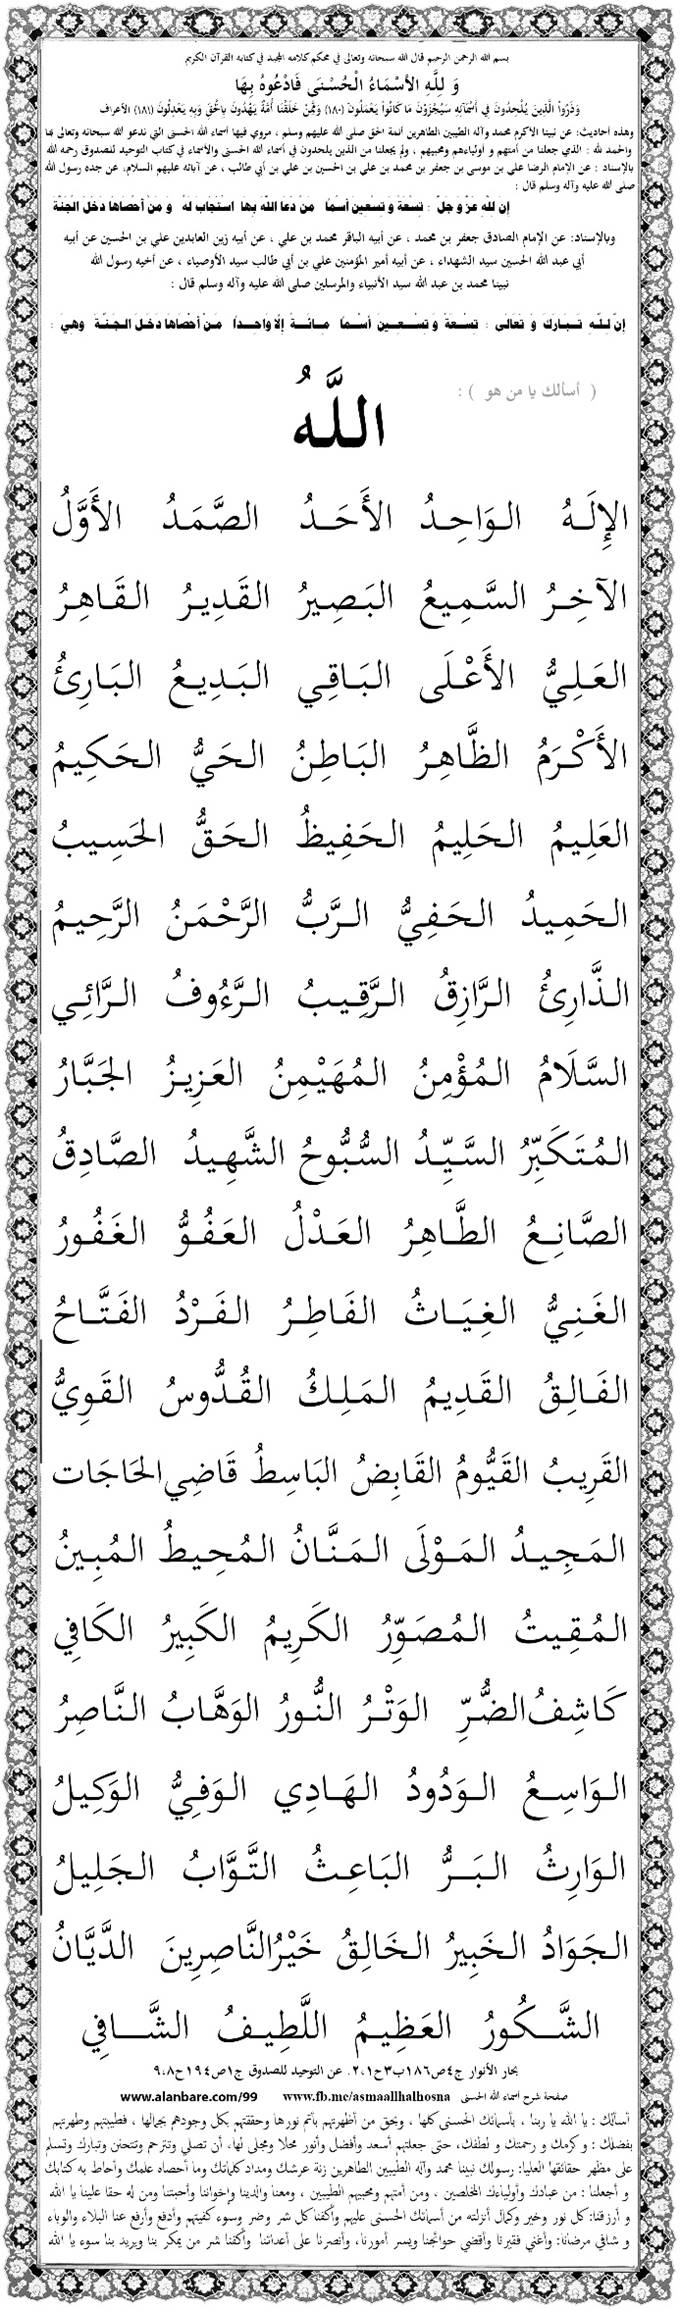 بسم الله الرحمن الرحيم قال الله سبحانه وتعالى في محكم كلامه المجيد في كتابه القرآن الكريم
وَ لِلَّهِ الأَسْمَاءُ الْحُسْنَى فَادْعُوهُ بِهَا
وَذَرُوا الَّذِينَ يُلْحِدُونَ فِي أَسْمَائِهِ سَيُجْزَوْنَ مَا كَانُوا يَعْمَلُونَ (١٨٠) وَمِمَّنْ خَلَقْنَا أُمَّةٌ يَهْدُونَ بِالْحَقِّ وَبِهِ يَعْدِلُونَ (١٨١) الأعراف
وهذه أحاديث: عن نبينا الأكرم محمد وآله الطيبين الطاهرين أئمة الحق صلى الله عليهم وسلم ، مروي فيها أسماء الله الحسنى التي ندعو الله سبحانه وتعالى بها
والحمد لله : الذي جعلنا من أمتهم و أولياءهم ومحبيهم ، ولم يجعلنا من الذين يلحدون في أسماء الله الحسنى والأسماء في كتاب التوحيد للصدوق رحمه الله
بالإسناد : عن الإمام الرضا علي بن موسى بن جعفر بن محمد بن علي بن الحسين بن علي بن أبي طالب ، عن آبائه عليهم السلام، عن جده رسول الله
صلى الله عليه وآله وسلم قال :
إن لله عز و جل : تسعة و تسعين أسما من دعا الله بها استجاب له و من أحصاها دخل الجنة
وبالإسناد: عن الإمام الصادق جعفر بن محمد ، عن أبيه الباقر محمد بن علي ، عن أبيه زين العابدين علي بن الحسين عن أبيه
أبي عبد الله الحسين سيد الشهداء ، عن أبيه أمير المؤمنين علي بن أبي طالب سيد الأوصياء ، عن أخيه رسول الله
نبينا محمد بن عبد الله سيد الأنبياء والمرسلين صلى الله عليه وآله وسلم قال :
إن لله تبارك و تعالى : تسعة و تسعين أسما مائة إلا واحدا من أحصاها دخل الجنة وهي :
( أسألك يا من هو ) :
اللَّهُ
الإِلَهُ الوَاحِدُ الأَحَدُ الصَّمَدُ الأَوَّلُ
الآخِرُ السَّمِيعُ البَصِيرُ القَدِيرُ القَاهِرُ
العَلِيُّ الأَعْلَى البَاقِي البَدِيعُ البَارِئُ
الأَكْرَمُ الظَّاهِرُ البَاطِنُ الحَيُّ الحَكِيمُ
العَلِيمُ الحَلِيمُ الحَفِيظُ الحَقُّ الحَسِيبُ
الحَمِيدُ الحَفِيُّ الرَّبُّ الرَّحْمَنُ الرَّحِيمُ
الذَّارِئُ الرَّازِقُ الرَّقِيبُ الرَّءُوفُ الرَّائِي
السَّلَامُ المُؤْمِنُ المُهَيْمِنُ العَزِيزُ الجَبَّارُ
المُتَكَبِّرُ السَّيِّدُ السُّبُّوحُ الشَّهِيدُ الصَّادِقُ
الصَّانِعُ الطَّاهِرُ العَدْلُ العَفُوُّ الغَفُورُ
الغَنِيُّ الغِيَاثُ الفَاطِرُ الفَرْدُ الفَتَّاحُ
الفَالِقُ القَدِيمُ المَلِكُ القُدُّوسُ القَوِيُّ
القَرِيبُ القَيُّومُ القَابِضُ البَاسِطُ قَاضِي الحَاجَات
المَجِيدُ المَوْلَى المَنَّانُ المُحِيطُ المُبِينُ
المُقِيتُ المُصَوِّرُ الكَرِيمُ الكَبِيرُ الكَافِي
كَاشِفُ الضُّرِّ الوَتْرُ النُّورُ الوَهَّابُ النَّاصِرُ
الوَاسِعُ الوَدُودُ الهَادِي الوَفِيُّ الوَكِيلُ
الوَارِثُ البَرُّ البَاعِثُ التَّوَّابُ الجَلِيلُ
الجَوَادُ الخَبِيرُ الخَالِقُ خَيْرُ النَّاصِرِينَ الدَّيَّانُ
الشَّكُورُ العَظِيمُ اللَّطِيفُ الشَّافِي
بحار الأنوار ج٤ص١٨٦ب٣ح٢،١. عن التوحيد للصدوق ج١ص١٩٤ح٩،٨
صفحة شرح اسماء الله الحسنى www.fb.me/asmaallhalhosna www.alanbare.com/99
أسألك : يا الله يا ربنا ، بأسمائك الحسنى كلها ، وبحق من أظهرتهم بأتم نورها وحققتهم بكل وجودهم بجمالها ، فطيبتهم وطهرتهم
بفضلك : و كرمك و رحمتك و لطفك، حتى جعلتهم أسعد وأفضل وأنور محلا ومجلى لها، أن تصلي وتترحم وتتحنن وتبارك وتسلم
على مظهر حقائقها العليا: رسولك نبينا محمد وآله الطيبين الطاهرين زنة عرشك ومداد كلماتك وما أحصاه علمك وأحاط به كتابك
و أجعلنا : من عبادك وأولياءك المخلصين ، ومن أمتهم ومحبيهم الطيبين ، ومعنا والدينا وإخواننا وأحبتنا ومن له حقا علينا يا الله
و أرزقنا: كل نور وخير وكمال أنزلته من أسمائك الحسنى عليهم وأكفنا كل شر وضر وسوء كفيتهم وأدفع وأرفع عنا البلاء والوباء
و شافي مرضانا: وأغني فقيرنا وأقضي حوائجنا ويسر أمورنا، وأنصرنا على أعدائنا وأكفنا شر من يمكر بنا ويريد بنا سوء يا الله